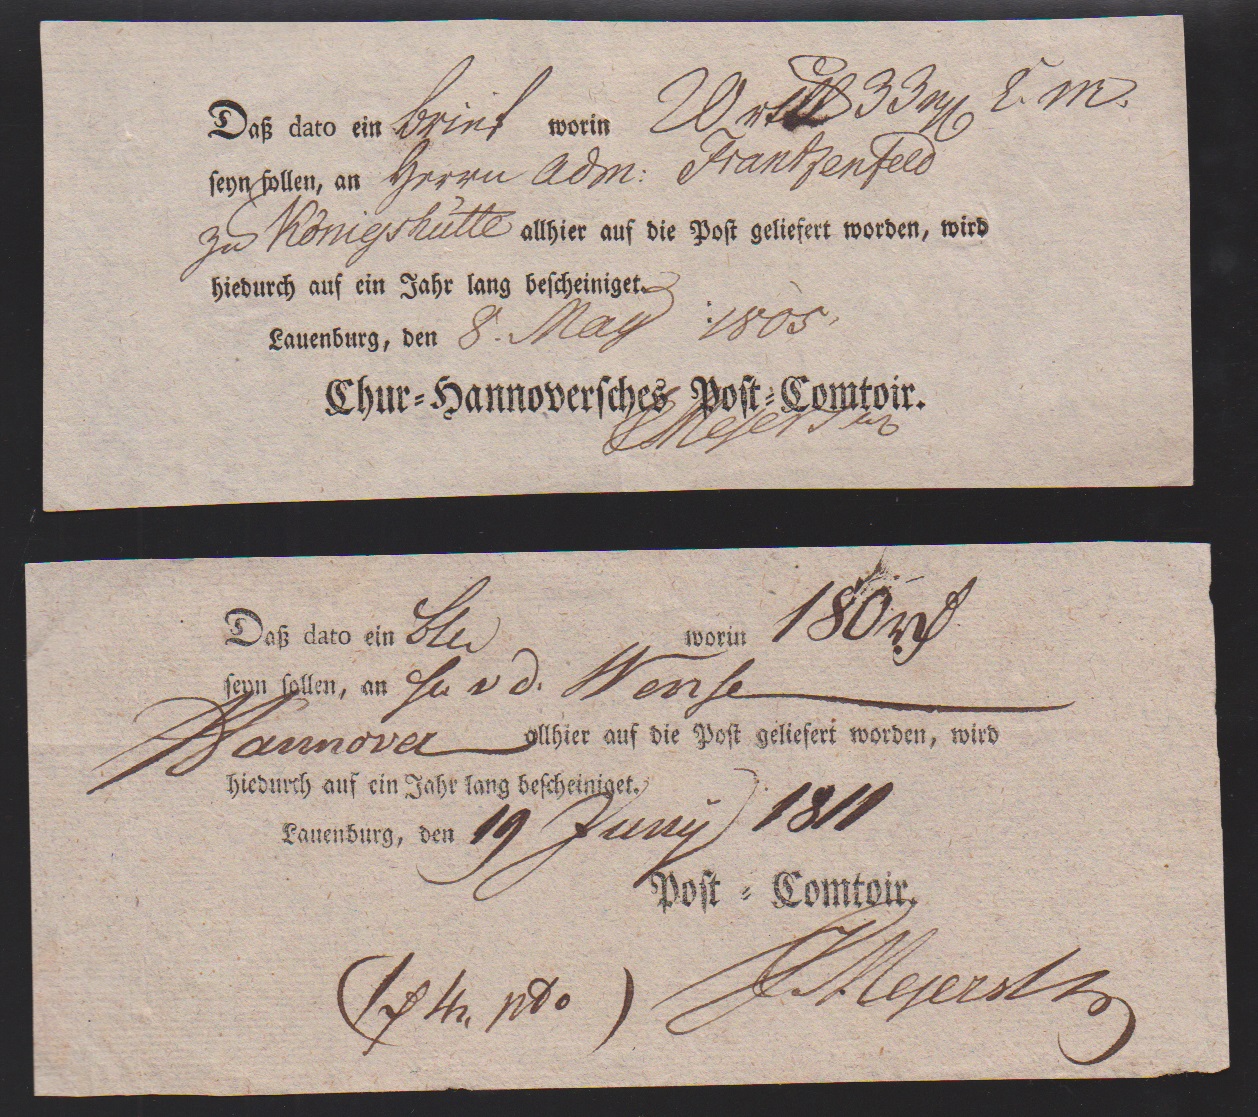 Daß dato ein brief worin 20 rthl 33 mg C. M.
seyn sollen, an Herrn Adm: Frantzenfeld
zu Königshütte allhier auf die Post geliefert worden, wird
hiedurch auf ein Jahr lang bescheiniget.
Lauenburg, den 8. May 1805.
Chur-Hannoversches Post-Comtoir.
Daß dato ein worin 180
seyn sollen, an H. v d. Wense
Hannover allhier auf die Post geliefert worden, wird
hiedurch auf ein Jahr lang bescheiniget.
Lauenburg, den 19 Juny 1811
Post-Comtoir.